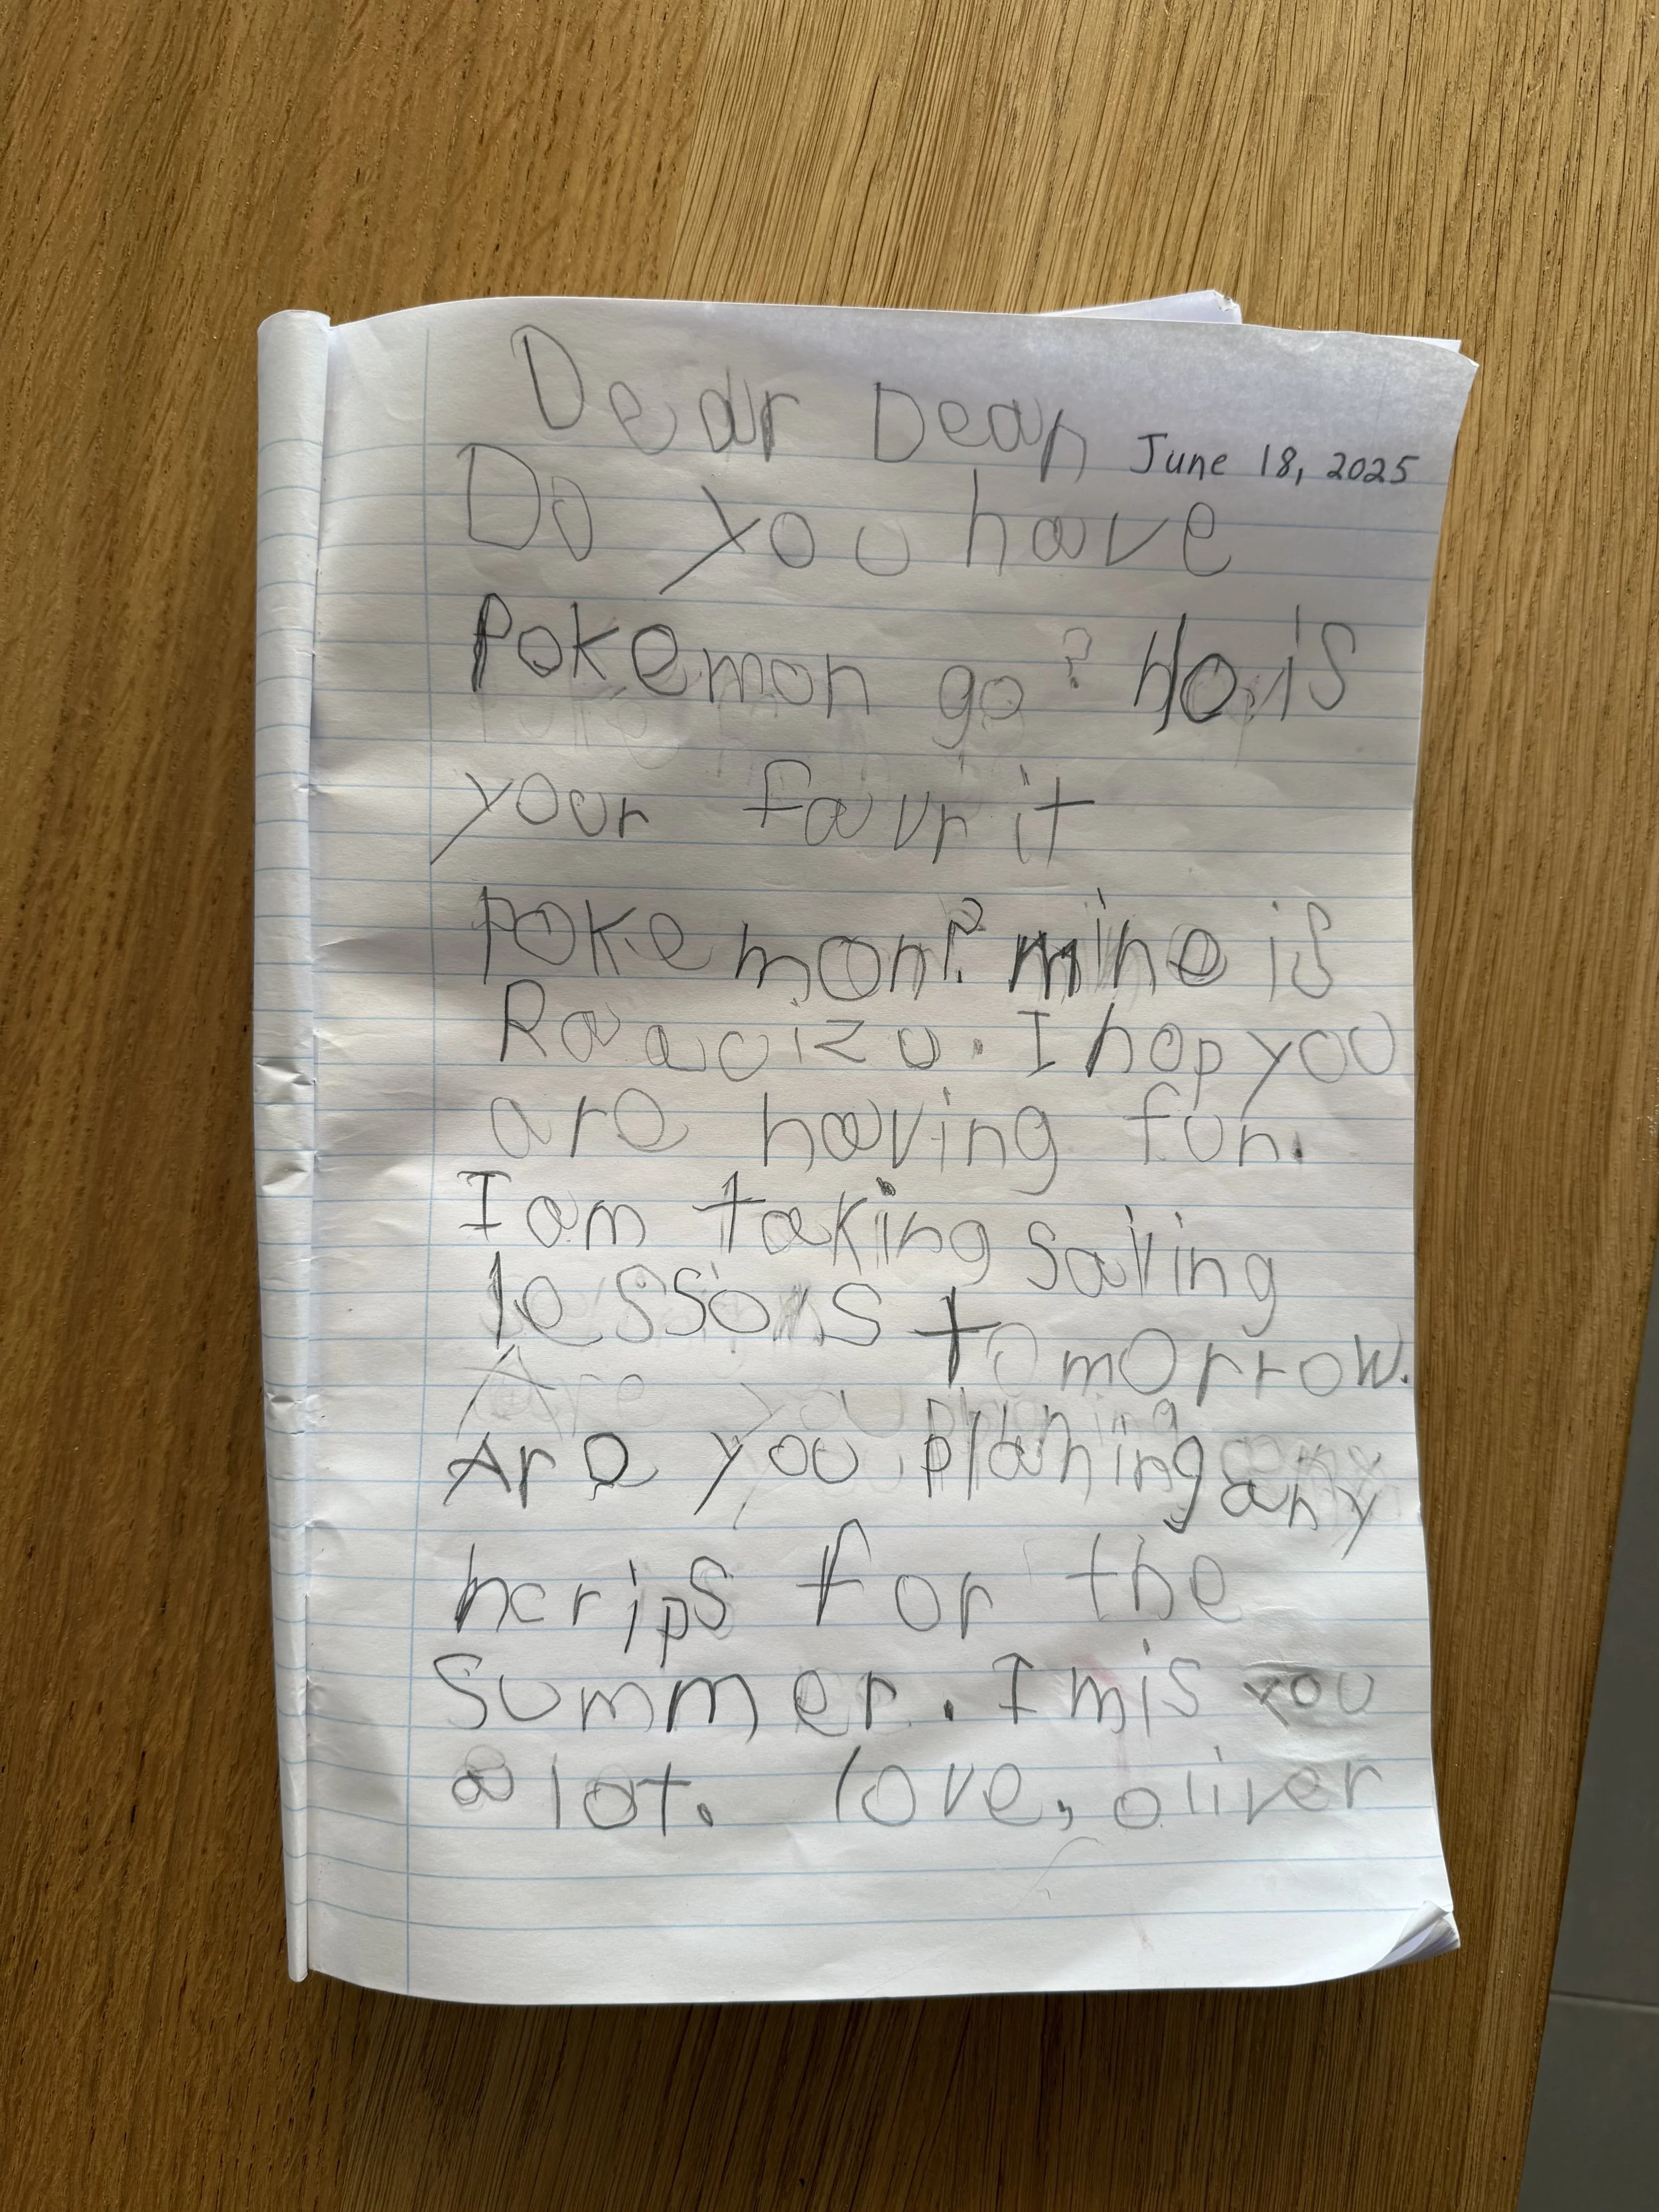 Dear Dean
June 18, 2025
Do you have
Pokemon go? Ho is
your favrit
Pokemon? mine is
Raaoizu. I hop you
are having fun.
I am taking saling
lessons tomorrow.
Are you planing any
hcrips for the
Summer. I mis you
a lot. love, oliver